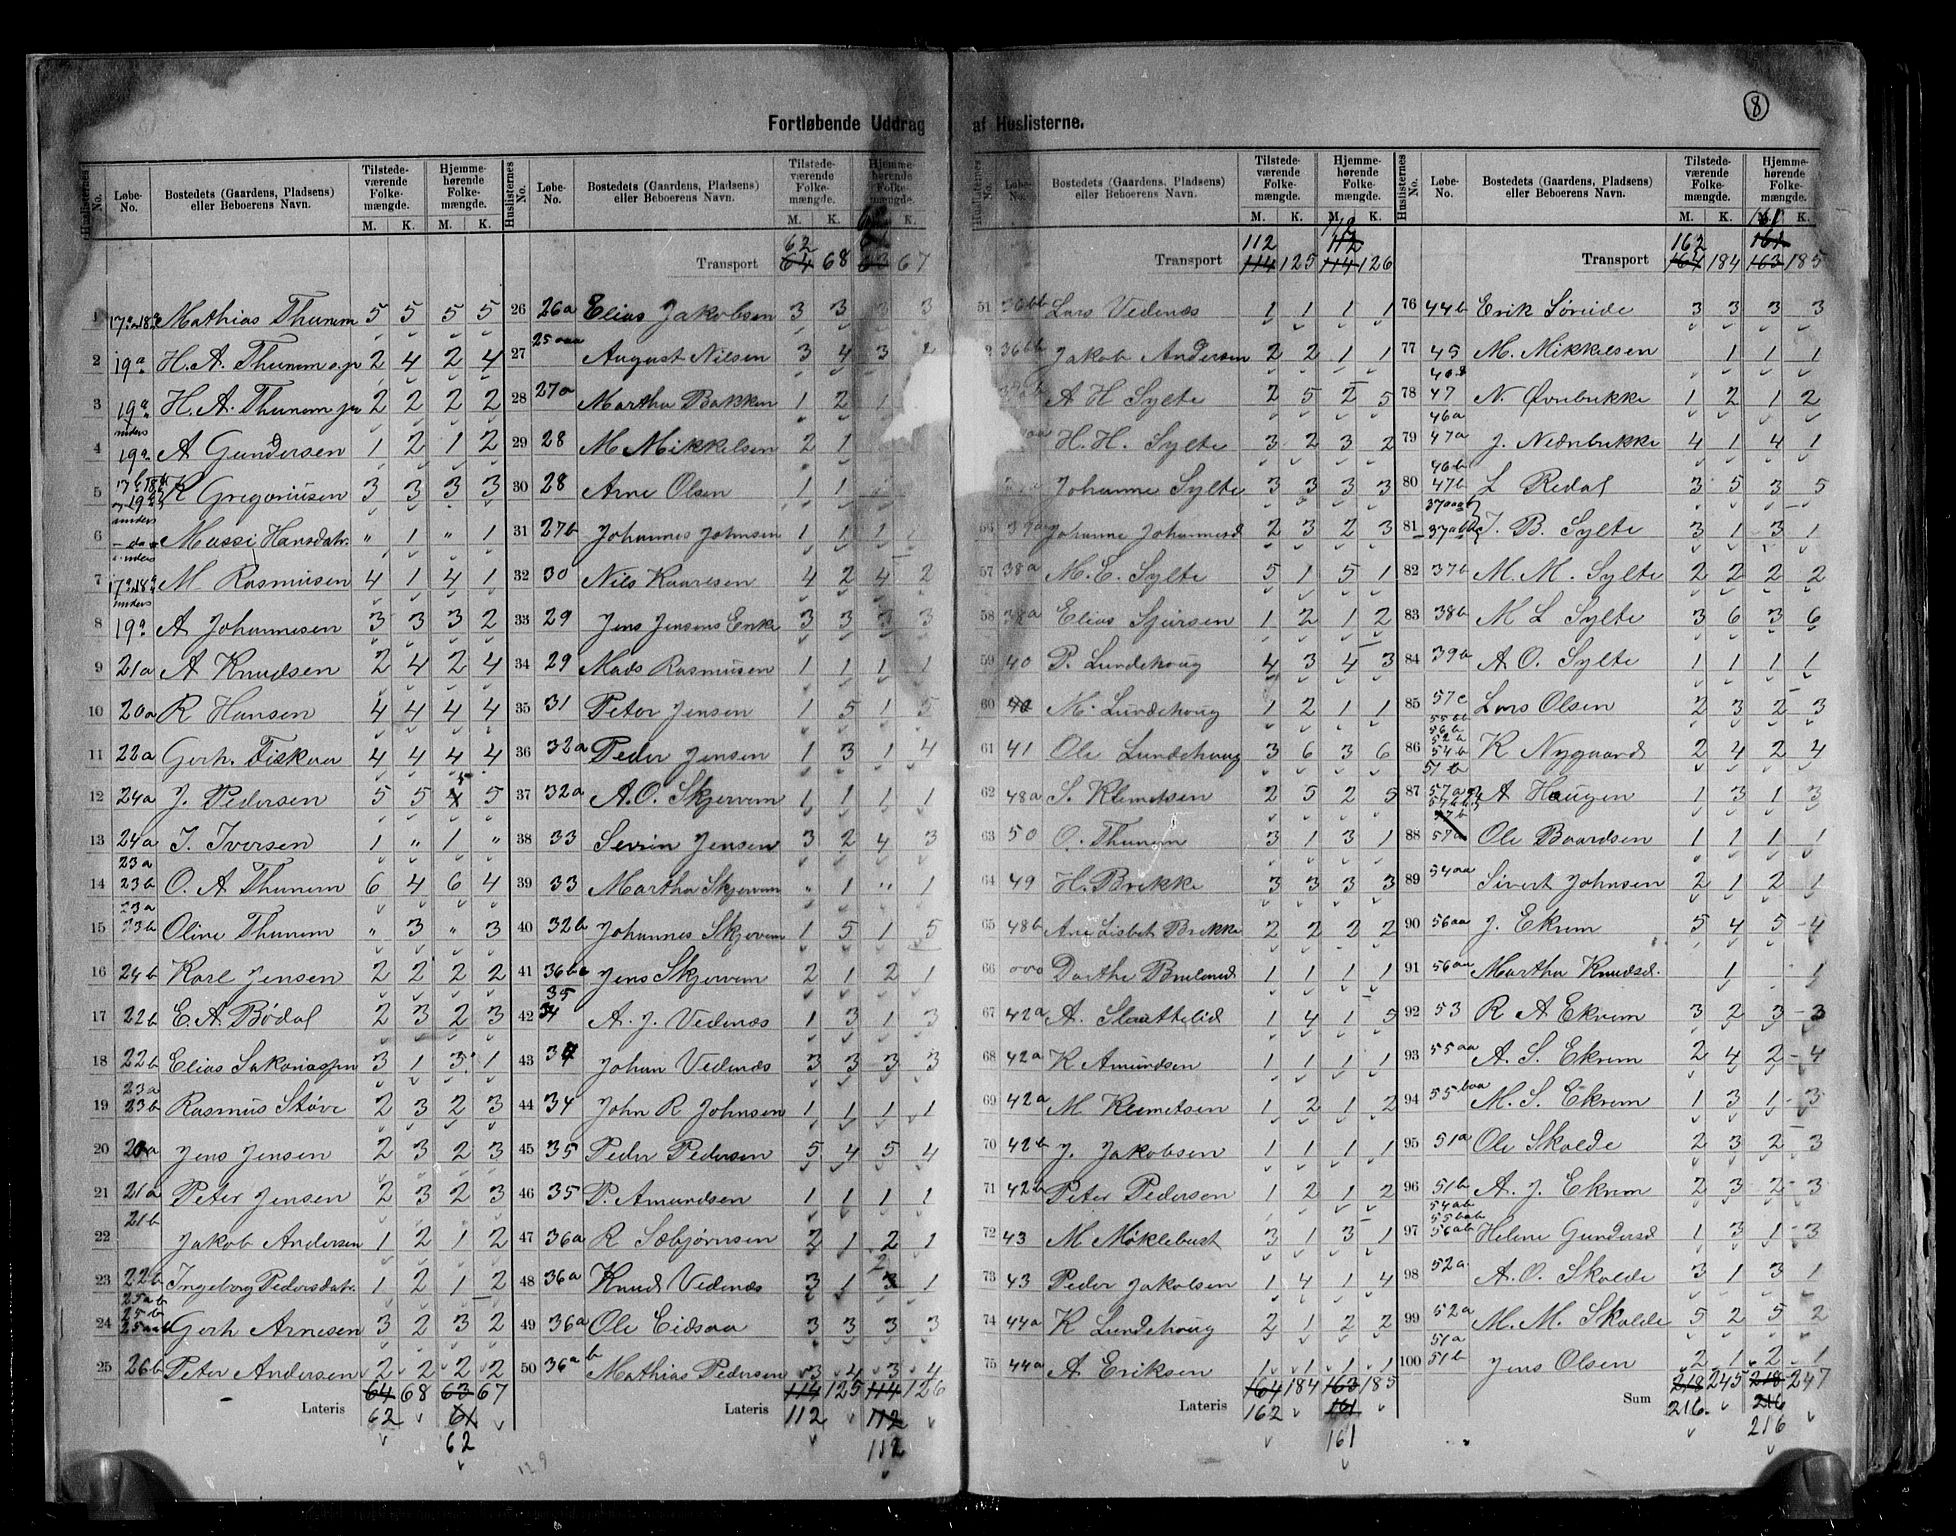 8
Fortløbende Uddrag af Huslisterne.
Huslisternes No. Løbe-No. Bostedets (Gaardens, Pladsens) eller Beboerens Navn. Tilstede-værende Folke-mængde. M. K. Hjemme-hørende Folke-mængde. M. K.
1 Mathias Thunem 5 5 5 5
2 19a H. A. Thunem s.p 2 4 2 4
3 19a H. A. Thunem jr 2 2 2 2
4 19a A Gundersen 1 2 1 2
5 R Gregoriusen 3 3 3 3
6 Massi Hansdatr. " 1 " 1
7 M. Rasmusen 4 1 4 1
8 19a A Johannesen 3 3 3 2
9 21a A Knudsen 2 4 2 4
10 20a R Hansen 4 4 4 4
11 22a Gerh. Fisknr 4 4 4 4
12 24a J. Pedersen 5 5 5 5
13 24a I. Iversen 1 " 1 "
14 23a 23b O. A Thunem 6 4 6 4
15 23a 23b Oline Thunem " 3 " 3
16 24b Karl Jensen 2 2 2 2
17 22b E. A. Bødal 2 3 2 3
18 22b Elias Sakariassen 3 1 3 1
19 23a 23b Rasmus Støve 2 3 2 3
20 20a Jens Jensen 2 3 2 3
21 21a Peter Jensen 2 3 2 3
22 21b Jakob Andersen 1 2 1 2
23 22b Ingeborg Pedersdatr. 1 2 1 2
24 25ab 25b Gerh Arnesen 3 2 3 2
25 26b Peter Andersen 2 2 2 2
Lateris 64 68 63 67
62 61
62
Transport 62 64 68 63 67
26 26a Elias Jakobsen 3 3 3 3
27 25aaa August Nilsen 3 4 3
28 27a Martha Bakken 1 2 1
29 28 M Mikkelsen 2 1
30 28 Arne Olsen 1 1
31 27b Johannes Johnsen 1 1 1 1
32 30 Nils Kaaresen 4 2 4 2
33 29 Jens Jensens Enke 3 3 3 3
34 29 Mads Rasmusen 1 1 1 1
35 31 Peter Jensen 1 5 1 5
36 32a Peder Jensen 1 3 1 4
37 32a A. O. Skjervem 1 1 1 1
38 33 Severin Jensen 3 2 4 3
39 33 Martha Skjervem " 1 " 1
40 32b Johannes Skjervem 1 5 1 5
41 36ba Jens Skjervem 2 1 2 1
42 35 34 A. J. Vedenæs 1 3 1 3
43 34 Johan Vedenæs 3 3 3 3
44 34 John R Johnsen 1 1 1 1
45 35 Peder Pedersen 5 4 5 4
46 35 P. Amundsen 1 1 1 1
47 36a R Sæbjørnsen 2 1 2 1
48 36a Knud Vedenæs 3 1 3 1
49 36a Ole Eidsaa 3 3 3 3
50 36ab Mathias Pedersen 3 4 3 4
Lateris 114 125 114 126
112 112
112
Transport 112 114 125 112 112 114 126
51 36bb Lars Vedenæs 1 1 1 1
36bb Jakob Andersen 2 2 1 1
A H Sylte 2 5 2 5
H. H. Sylte 3 2 3 2
Johanne Sylte 3 3 3 3
56 37a Johanne Johannesd 2 3 2 3
57 38a M. E. Sylte 5 1 5 1
58 38a Elias Sjursen 1 2 1 2
59 40 P. Lundehoug 4 3 4 3
60 40 M. Lundehoug 1 2 1 1
61 41 Ole Lundehoug 3 6 3 6
62 48a S. Klemetsen 2 5 2 5
63 50 O. Thunem 3 1 3 1
64 49 H. Brekke 3 3 3 3
65 48b Ane Lisbet Brekke 2 2 2 2
66 000 Dorthe Bruland 1 1 1 1
67 42a A. Slaattelid 1 4 1 5
68 42a K Amundsen 1 1 1 1
69 42a M Klemetsen 1 2 1 2
70 42b J. Jakobsen 1 1 1 1
71 42b Peter Pedersen 1 2 1 2
72 43 M Møklebust 3 1 3 1
73 43 Peder Jakobsen 1 4 1 4
74 44a K Lundehoug 2 1 2 2
75 44a A Eriksen 1 1 1 1
Lateris 164 184 163 185
162 161
161
Transport 162 164 184 161 161 163 185
76 44b Erik Søreide 3 3 3 3
77 45 M. Mikkelsen 1 1 1
78 47 N. Øvrebukke 1 2 1 2
79 46a 47a J. Nedrebukke 4 1 4 1
80 46b 47b L Redal 3 5 3 5
81 J. B. Sylte 3 1 3 1
82 37b M. M. Sylte 2 2 2 2
83 38b M L Sylte 3 6 3 6
84 39b A. O. Sylte 1 1 1 1
85 57c Lars Olsen 2 3 2 3
86 55bb 56b 52b 54b 51b K Nygaard 2 4 2 4
87 A Haugen 1 3 1 3
88 57a Ole Baardsen 1 1 1 1
89 54aa Sivert Johnsen 2 1 2 1
90 56aa J. Ekrem 5 4 5 4
91 56aa Martha Knudsd. 1 1
92 53 R A Ekrem 3 2 3 3
93 55aa A. S. Ekrem 2 4 2 4
94 55baa M. S. Ekrem 1 3 1 3
95 51a Ole Skolde 2 3 2 3
96 51b A. J. Ekrem 2 3 2 3
97 54ab 55bab 56ab Helene Gundersd 1 3 1 3
98 52a A. O. Skolde 3 1 3 1
99 52a M. M. Skolde 5 2 5 2
100 51a 51b Jens Olsen 2 1 2 1
Sum 218 245 218 247
216 216
216